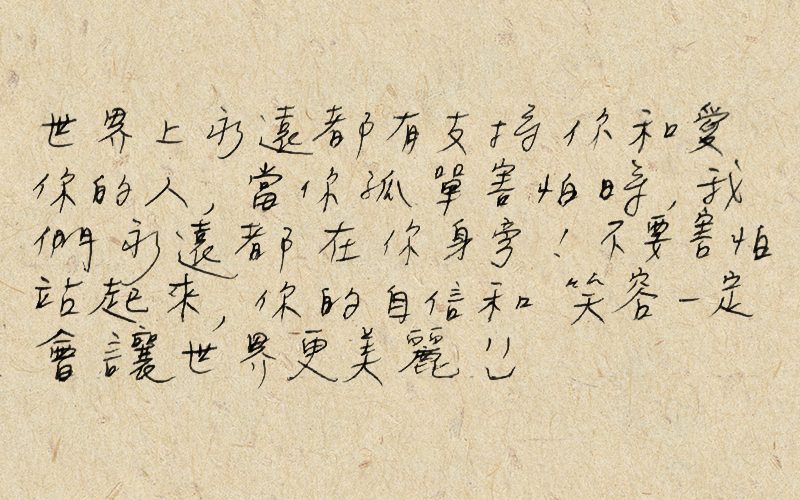 世界上永遠都有支持你和愛
你的人,當你孤單害怕時,我
們永遠都在你身旁!不要害怕
站起來,你的自信和笑容一定
會讓世界更美麗!!